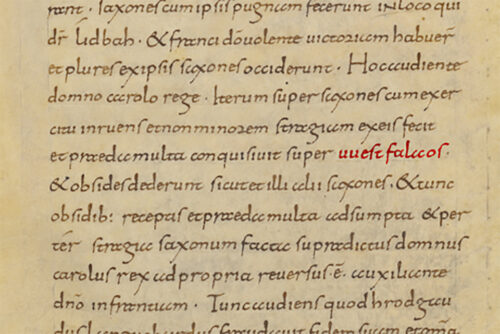 rant · saxones cum ipsis pugnam fecerunt in loco qui
dr̄ lidbah · & franci dō volente victoriam habuer̄
et plures ex ipsis saxones occiderunt · Hoc audiente
domno carolo rege · Iterum super saxones cum exer
citu inruens et non minorem stragiam ex eis fecit
et praeda multa conquisivit super uuestfalaos ·
& obsides dederunt sicut et illi alii saxones · & tunc
obsidib: receptas et praeda multa adsumpta & per
ter̄ stragia saxonum factas supradictus domnus
carolus rex ad propria reversus ē · auxiliante
dn̄o in frantiam · Tunc audiens quod hrodgau
dus